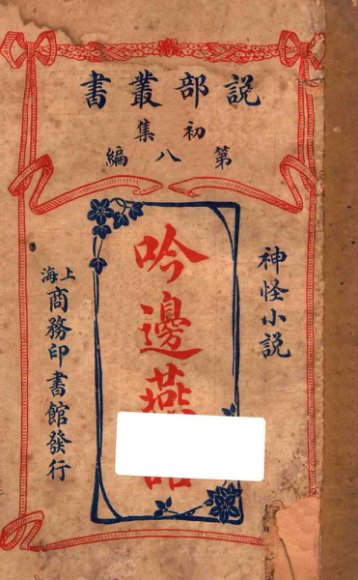 説部叢書
初集
第八編
神怪小説
吟邊燕
上海
商務印書館發行